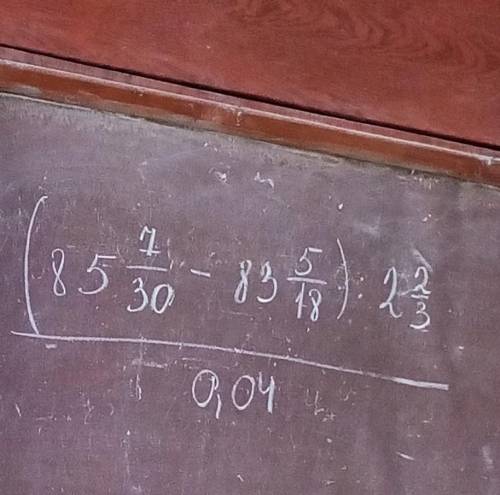 (85 7/30 - 83 5/18) : 2 2/3
0,04